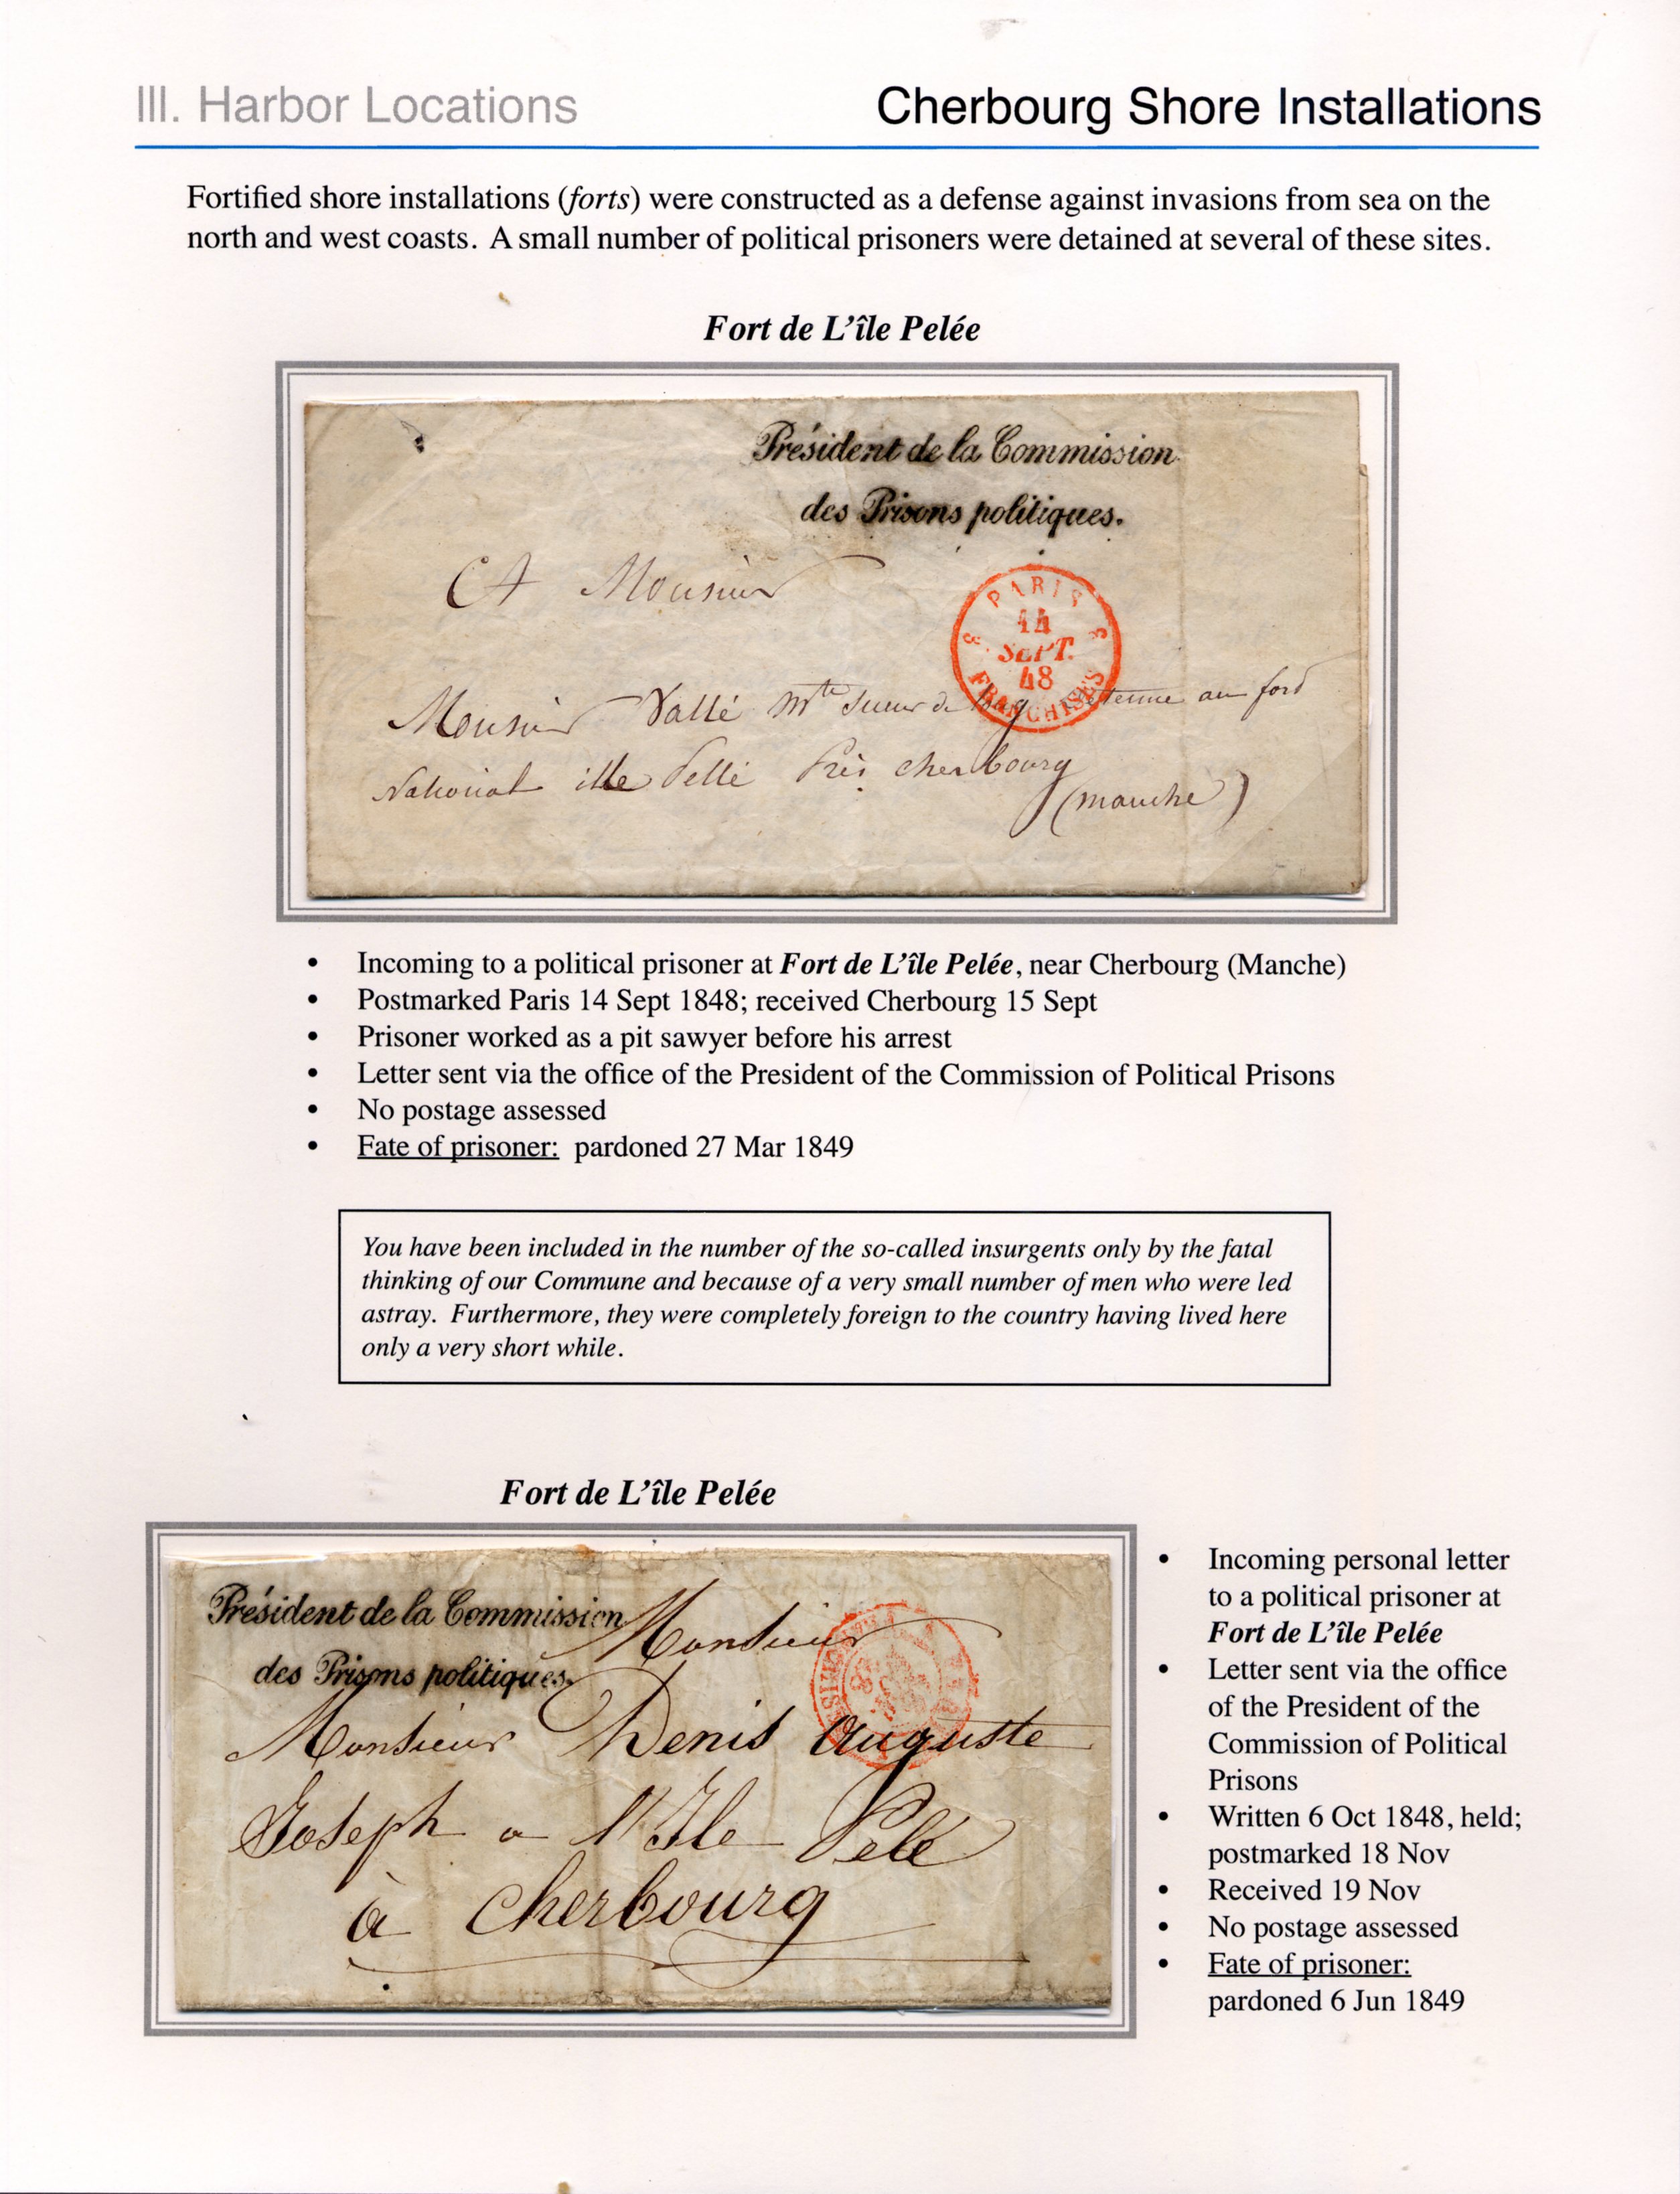 III. Harbor Locations
Cherbourg Shore Installations
Fortified shore installations (forts) were constructed as a defense against invasions from sea on the
north and west coasts. A small number of political prisoners were detained at several of these sites.
Fort de L’île Pelée
Président de la Commission
des Prisons politiques.
A Monsieur
PARIS
14
SEPT.
48
3 3
FRANCHISES
Monsieur Vallé au ford
National ille Pellé Près cherbourg
(manche)
• Incoming to a political prisoner at Fort de L’île Pelée, near Cherbourg (Manche)
• Postmarked Paris 14 Sept 1848; received Cherbourg 15 Sept
• Prisoner worked as a pit sawyer before his arrest
• Letter sent via the office of the President of the Commission of Political Prisons
• No postage assessed
• Fate of prisoner: pardoned 27 Mar 1849
You have been included in the number of the so-called insurgents only by the fatal
thinking of our Commune and because of a very small number of men who were led
astray. Furthermore, they were completely foreign to the country having lived here
only a very short while.
Fort de L’île Pelée
Président de la Commission
des Prisons politiques.
Monsieur
Monsieur Denis Auguste
Joseph a l'Ile Pelé
à Cherbourg
• Incoming personal letter
to a political prisoner at
Fort de L’île Pelée
• Letter sent via the office
of the President of the
Commission of Political
Prisons
• Written 6 Oct 1848, held;
postmarked 18 Nov
• Received 19 Nov
• No postage assessed
• Fate of prisoner:
pardoned 6 Jun 1849